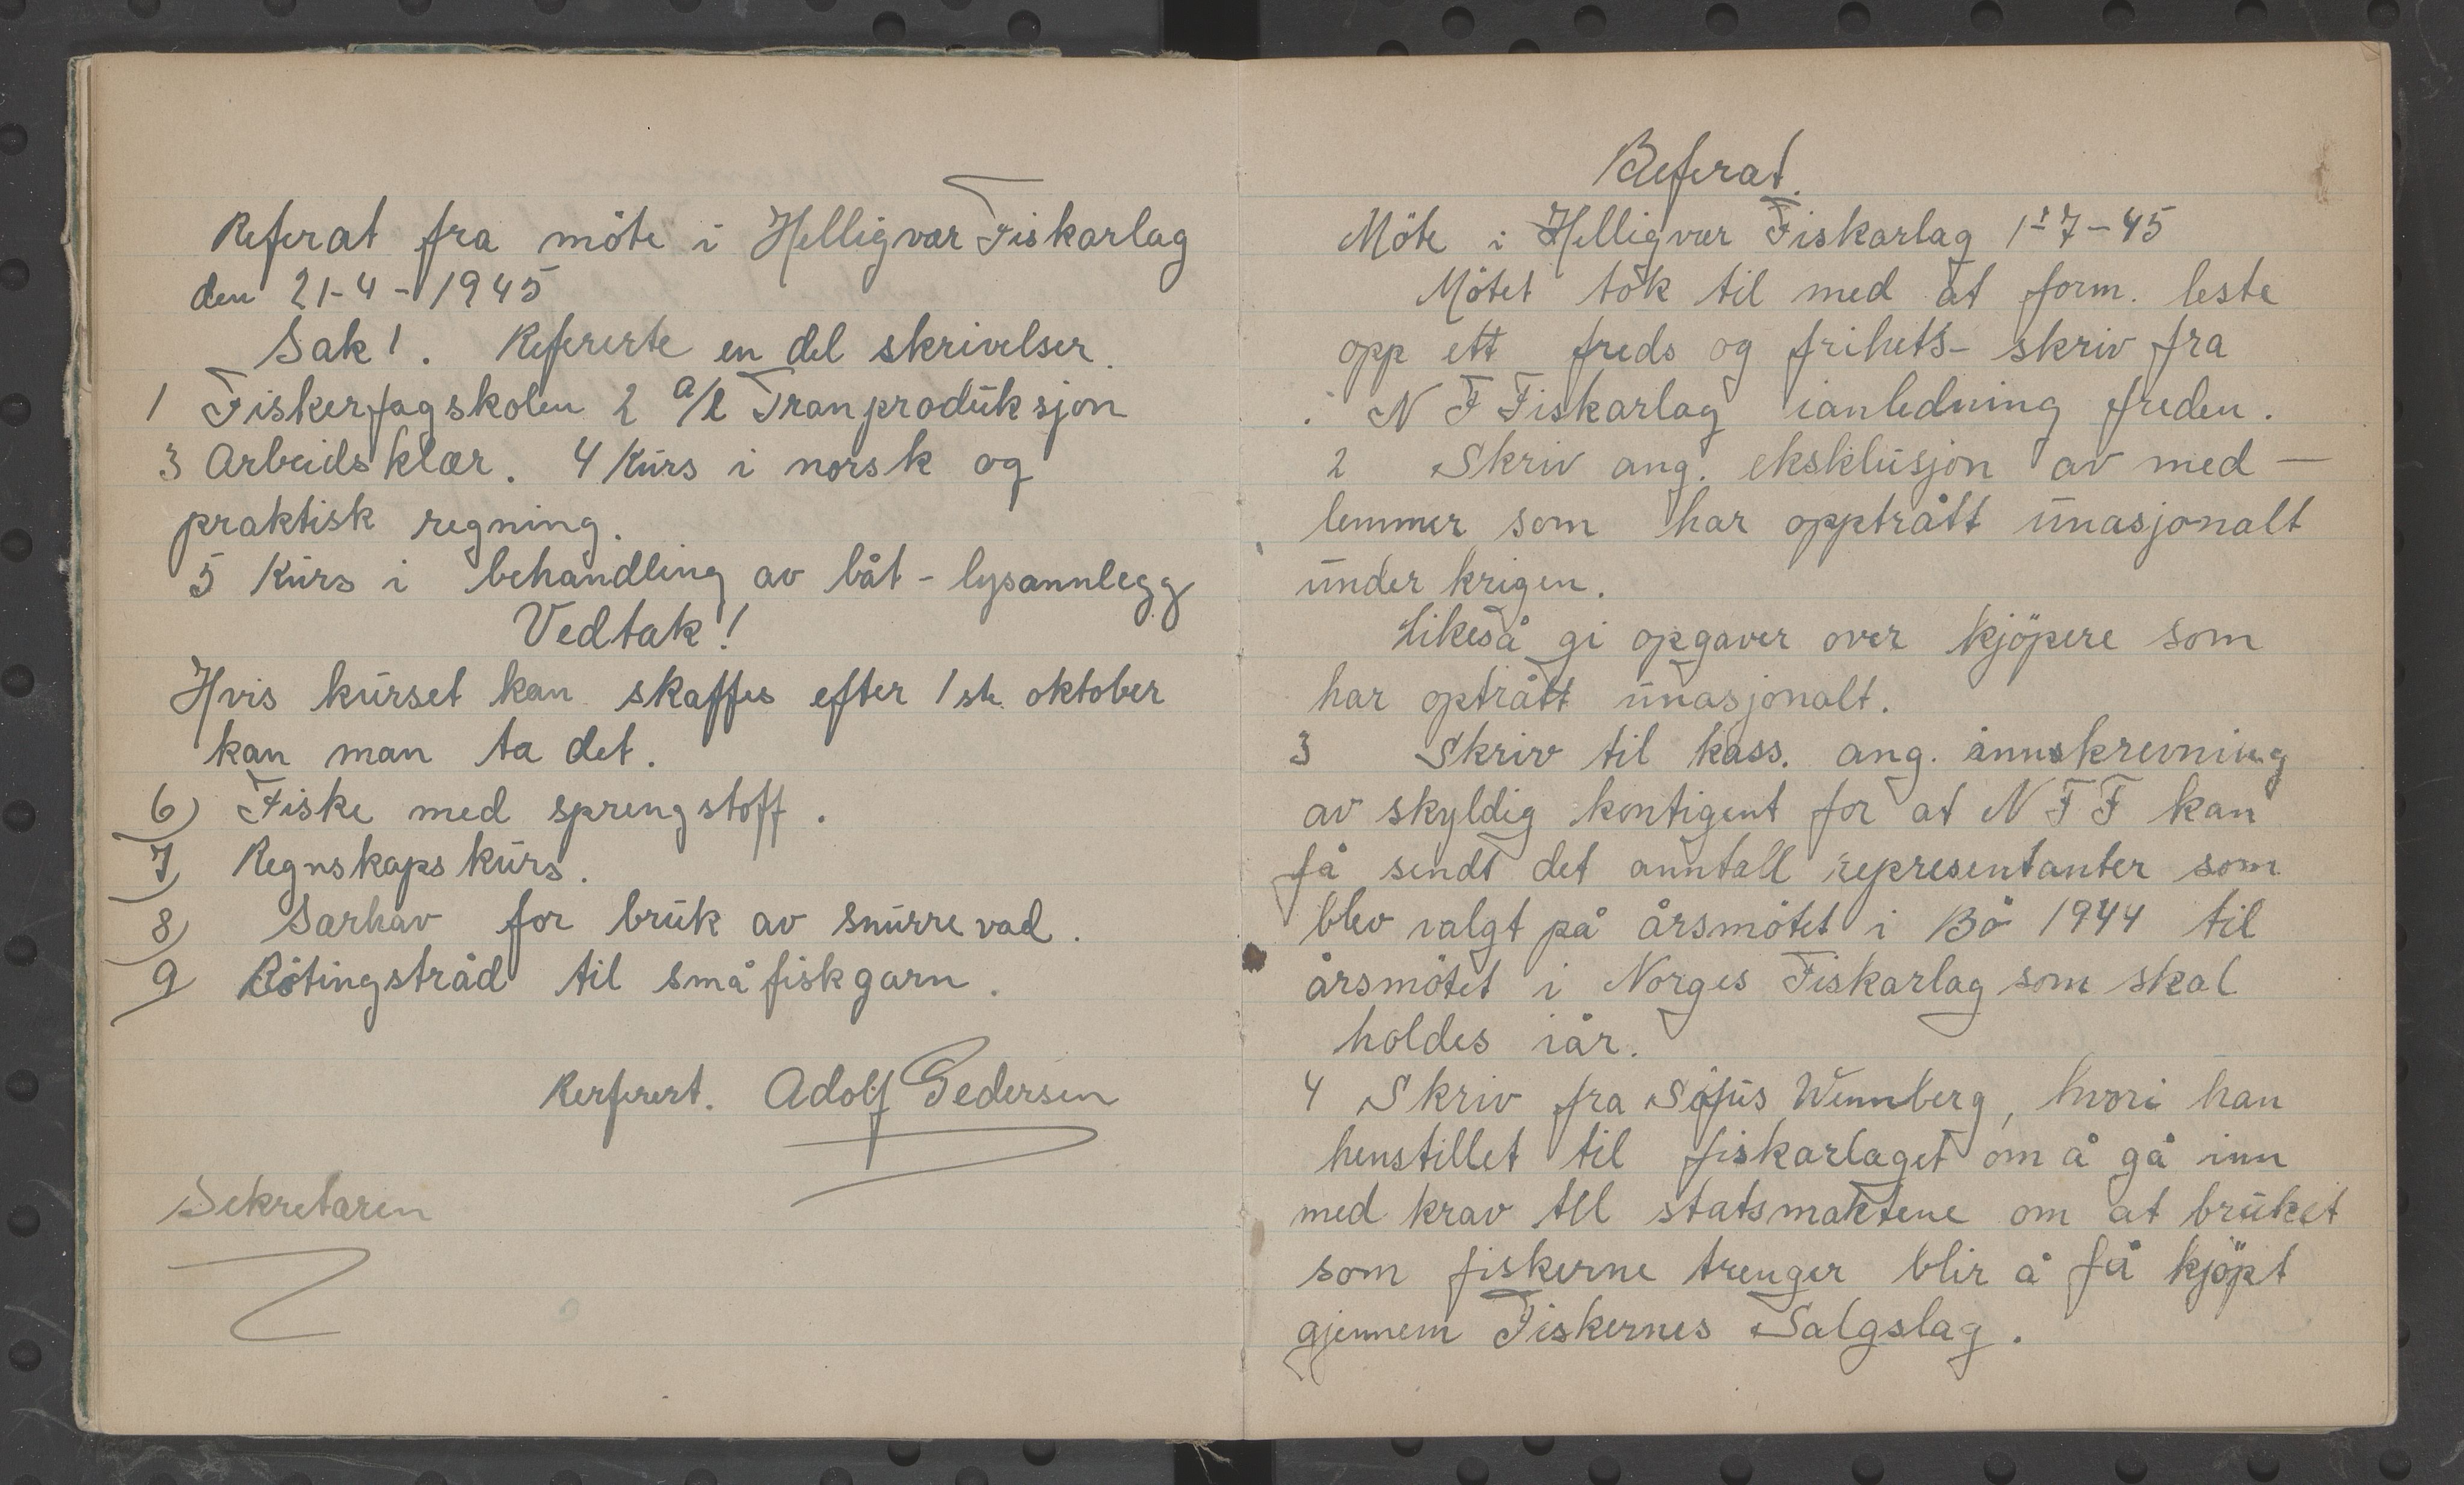 Referat fra möte i Helligvær Fiskarlag
den 21-4-1945
Sak 1. Refererte en del skrivelser.
1 Fiskerfagskolen 2 a/l Tranproduksjon
3 Arbeidsklær. 4 Kurs i norsk og
praktisk regning.
5 Kurs i behandling av båt-lysannlegg
Vedtak!
Hvis kurset kan skaffes efter 1ste oktober
kan man ta det.
6) Fiske med sprengstoff.
7) Regnskapskurs.
8) Særhav for bruk av snurrevad.
9) Bötingstråd til småfiskgarn.
Rerferert. Adolf Pedersen
Sekretæren
Referat.
Möte i Helligvær Fiskarlag 1-7-45
Mötet tok til med at form. leste
opp ett freds og frihets- skriv fra
N F Fiskarlag ianledning freden.
2 Skriv ang. eksklusjon av med-
lemmer som har opptrått unasjonalt
under krigen.
Likeså gi opgaver over kjöpere som
har optrått unasjonalt.
3 Skriv til kass. ang. innskrevning
av skyldig kontigent for at N F F kan
få sendt det anntall representanter som
blev valgt på årsmötet i Bö 1944 til
årsmötet i Norges Fiskarlag som skal
holdes iår.
4 Skriv fra Sofus Wennberg, hvori han
henstillet til fiskarlaget om å gå inn
med krav till statsmaktene om at bruket
som fiskerne trenger blir å få kjöpt
gjennem Fiskernes Salgslag.